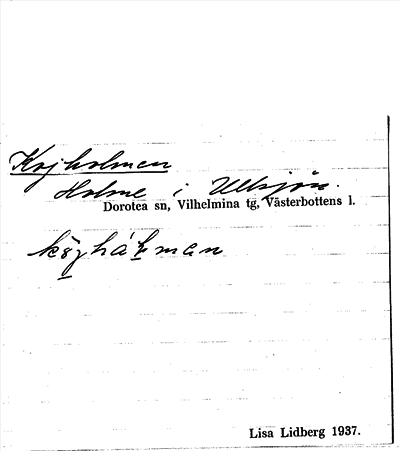 Kojholmen
Holme i Ullsjön.
Dorotea sn, Vilhelmina tg, Västerbottens l.
Lisa Lidberg 1937.